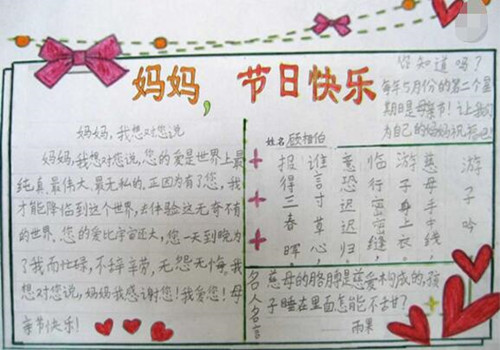 妈妈，节日快乐
你知道吗？
每年5月份的第二个星
期日是母亲节！让我们
为自己的妈妈祝福吧
妈妈，我想对您说
妈妈，我想对您说，您的爱是世界上最
纯真、最伟大、最无私的。正因为有了您，我
才能降临到这个世界，去体验这无奇不有
的世界。您的爱比宇宙还大，您一天到晚为
了我而忙碌，不辞辛劳，无怨无悔，我
想对您说，妈妈我感谢您！我爱您！母
亲节快乐！
姓名 顾相伯
游子吟
慈母手中线，
游子身上衣。
临行密密缝，
意恐迟迟归。
谁言寸草心，
报得三春晖。
名人名言
慈母的胳膊是慈爱构成的，孩
子睡在里面怎能不舌甘？
雨果